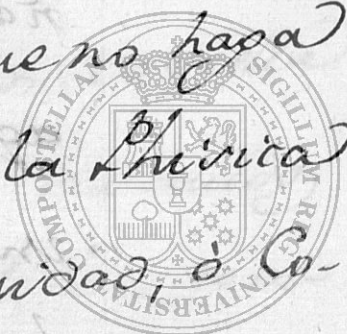 ue no haga
la Phisica
nidad, ò Co-
SIGILLUM REG UNIVERSITATIS COMPOSTELLAN